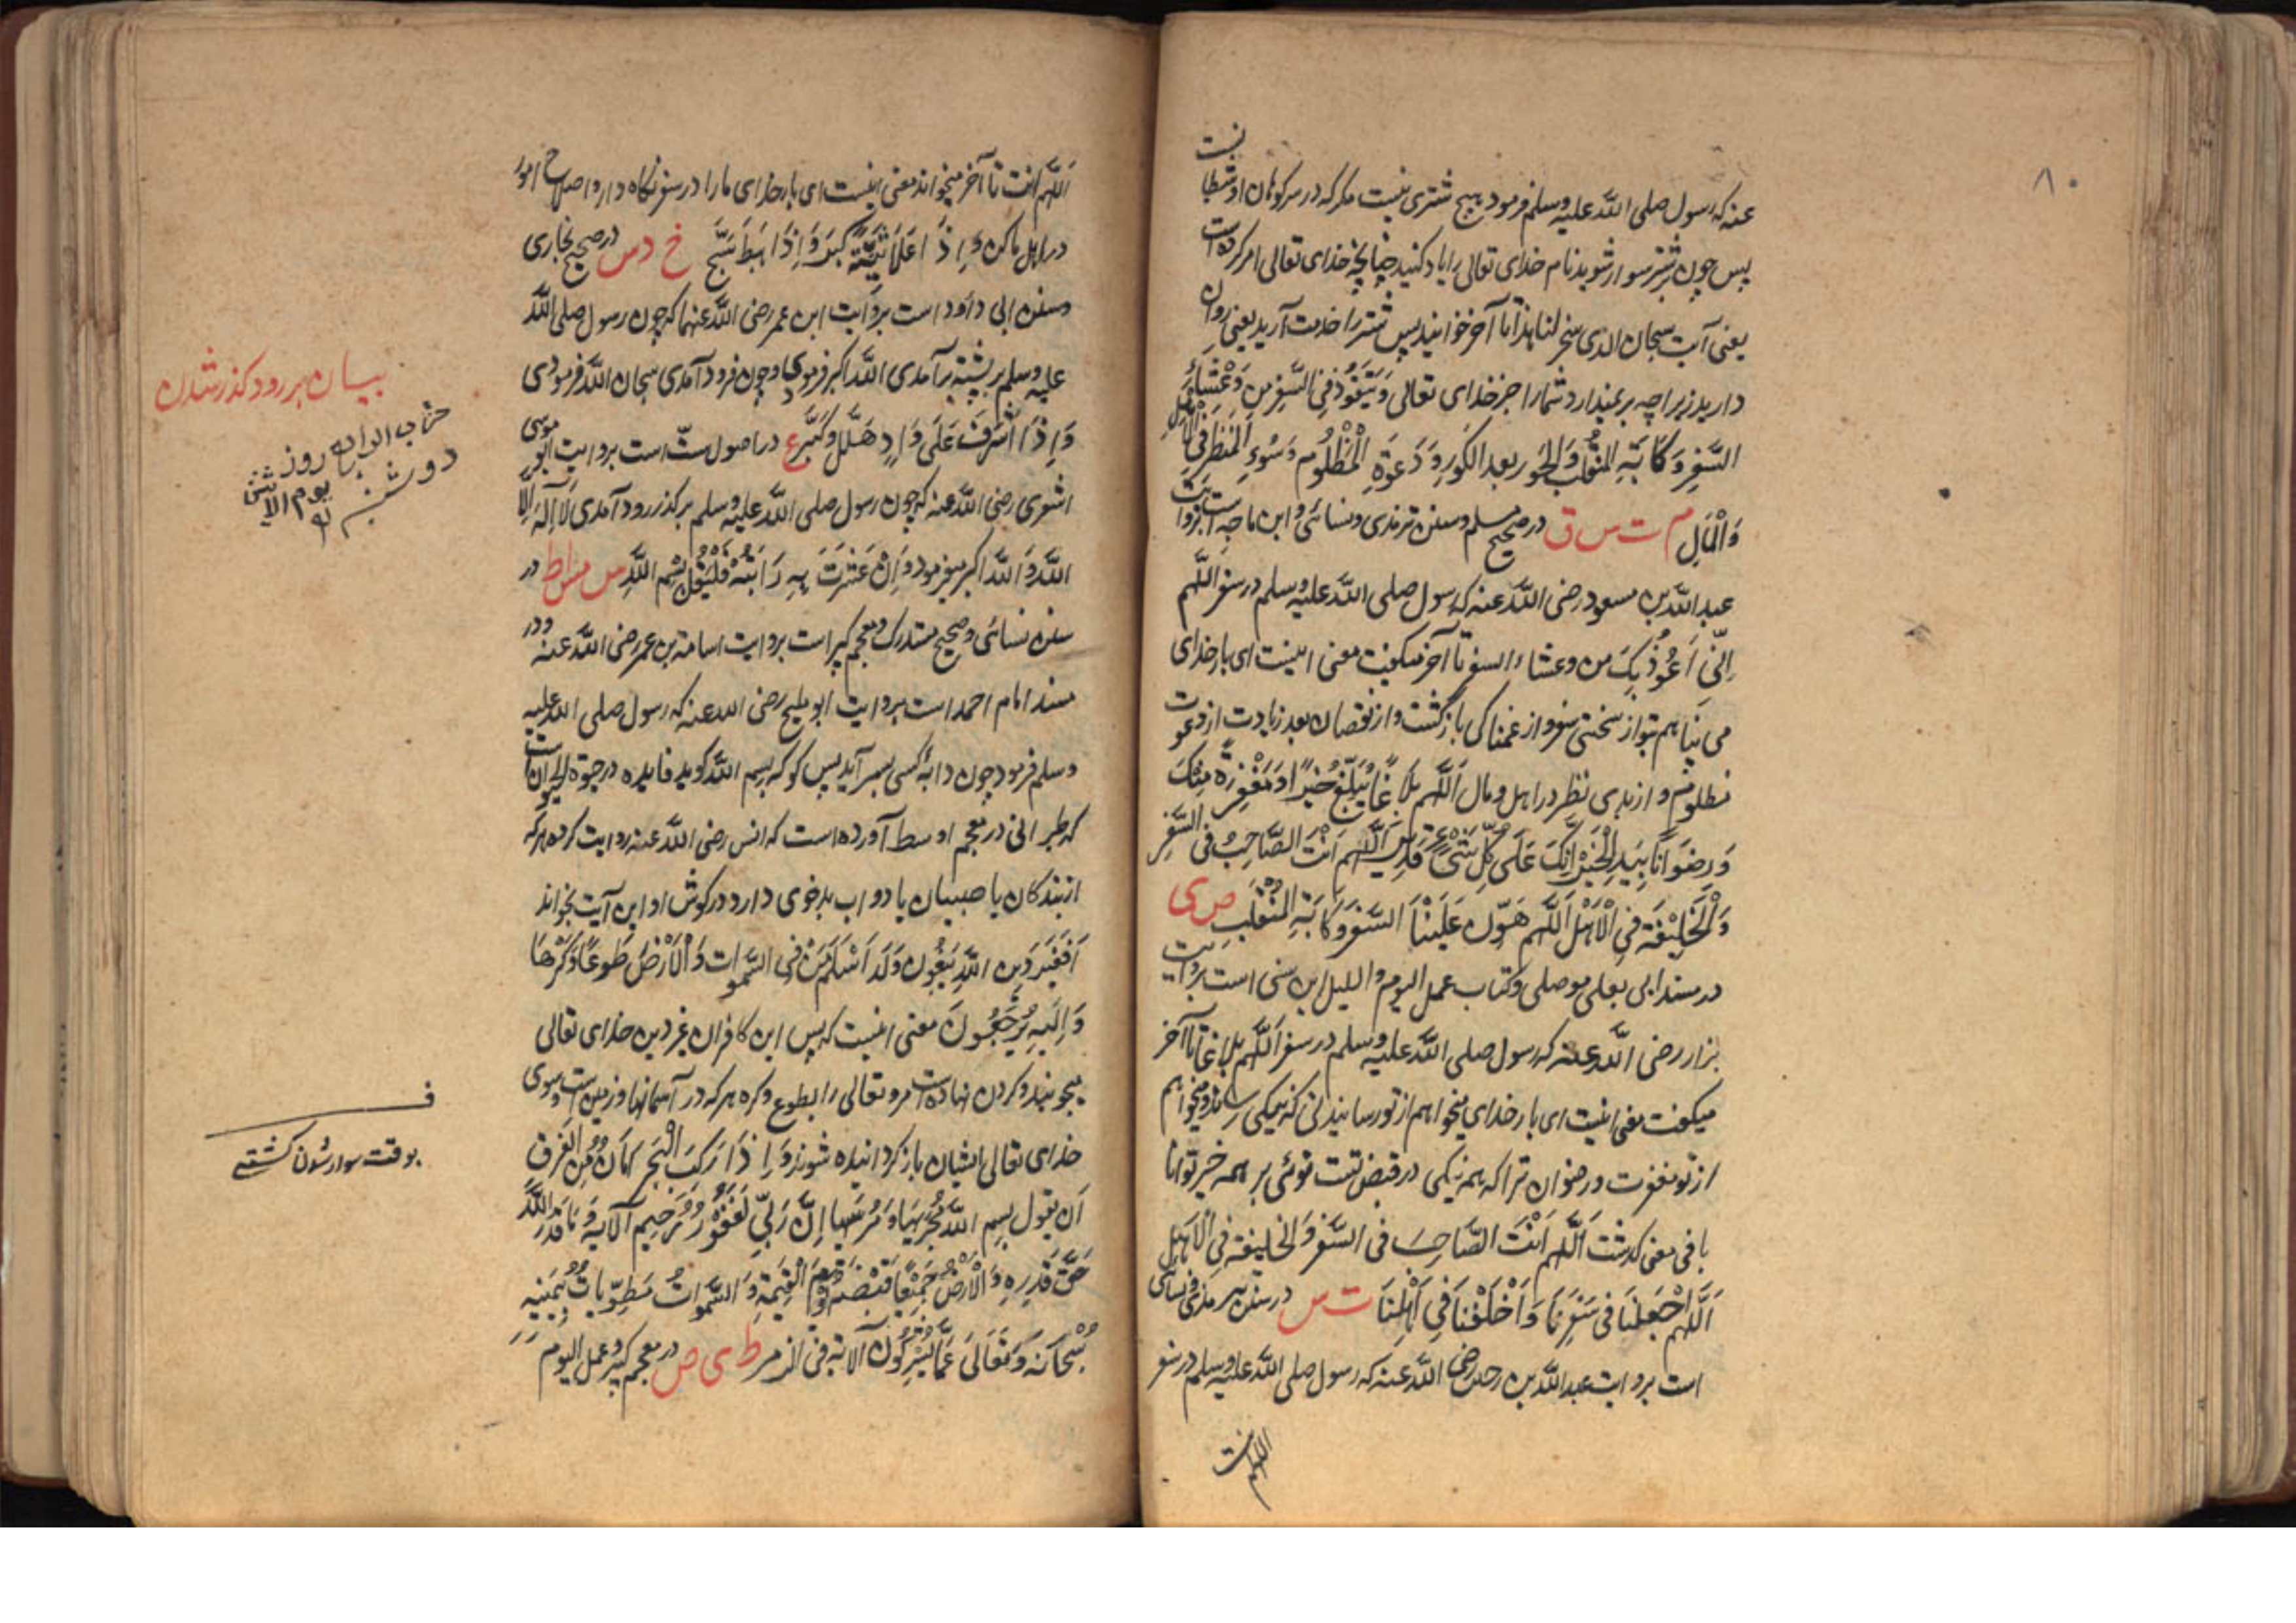 ۸۰
عنه که رسول صلی الله علیه وسلم فرمود هیچ شتری نیست مگر که در سر کوهان او شیطا نست
پس چون بر شتر سوار شوید نام خدای تعالی را یاد کنید چنانچه خدای تعالی امر کرده است
یعنی آیت سبحان الذی سخر لنا هذا تا آخر خوانید پس شتر را خدمت آرید یعنی روان
دارید زیرا چه بر نمیدارد شمارا جز خدای تعالی وَیَتَعَوَّذُ فِی السَّفَرِ مِن وَعْثَاءِ
السَّفَرِ وَکَآبَةِ المُنْقَلَبِ وَالحَوْرِ بعد الکَوْرِ وَدَعْوَةِ الْمَظْلُوْمِ وَسُوْءِ المَنْظَرِ فِی الْاَهْلِ
وَالْمَالِ م ت س ق در صحیح مسلم وسنن ترمذی ونسائی وابن ماجه است بروایت
عبد الله بن مسعود رضی الله عنه که رسول صلی الله علیه وسلم در سفر اللهم
اِنِّی اَعُوْذُ بِکَ من وعثاء السفر تا آخر میگفت معنی اینست ای بار خدای
می پناهم بتو از سختی سفر و از غمناکی بازگشت و از نقصان بعد زیادت از دعوت
مظلوم و از بدی نظر در اهل و مال اَللّٰهُم بَلَاغًا یُبَلِّغُ خَیْرًا وَمَغْفِرَةً مِنْکَ
وَرِضْوَانًا بِیَدِکَ الْخَیْرُ اِنَّکَ عَلٰی کُلِّ شَیْءٍ قَدِیْرٌ اَللّٰهُم اَنْتَ الصَّاحِبُ فِی السَّفَرِ
وَالْخَلِیْفَةُ فِی الْاَهْلِ اَللّٰهُم هَوِّن عَلَیْنَا السَّفَرَ وَکَآبَةِ المُنْقَلَبِ ص ی
در مسند ابی یعلی موصلی و کتاب عمل الیوم واللیل ابن سنی است بروایت
بزار رضی الله عنه که رسول صلی الله علیه وسلم در سفر اَللّٰهُم بلاغا تا آخر
میگفت معنی اینست ای بار خدای میخواهم از تو رسانیدنی که نیکی رساند و میخواهم
از تو مغفرت و رضوان ترا که همه نیکی در قبض تست توئی بر همه خیر توانا
باقی معنی گذشت اَللّٰهُم اَنْتَ الصَّاحِبَ فی السَّفَرِ وَالخلیفة فِی الْاَهْلِ
اَللّٰهُم اجْعَلْنَا فی سَفَرِنَا وَاخْلُفْنَا فِی اَهْلِنَا ت س در سنن ترمذی ونسائی
است بروایت عبد الله بن رضی الله عنه که رسول صلی الله علیه وسلم در سفر
اللهم انت
اَللّٰهُم انت تا آخر میخواند معنی اینست ای بار خدای ما را در سفر نگاه دار و اصلاح امور
در اهل ما کن وَاِذَا عَلَا ثَنِیَّةً کَبَّرَ وَاِذَا هَبَطَ سَبَّحَ خ د س در صحیح بخاری
وسنن ابی داود است بروایت ابن عمر رضی الله عنهما که چون رسول صلی الله
علیه وسلم بر پشته برآمدی الله اکبر فرمودی و چون فرود آمدی سبحان الله فرمودی
وَاِذَا اَشْرَفَ عَلٰی وَادٍ هَلَّلَ وَکَبَّرَ ع در اصول ستّ است بروایت ابو موسی
اشعری رضی الله عنه که چون رسول صلی الله علیه وسلم بر گذر رود آمدی لَا اِلٰهَ اِلَّا
اللّٰهُ وَاللّٰهُ اکبر میفرمود وَاِنْ عَثَرَتَ بِهِ دَابَّتُهُ فَلْیَقُلْ بِسْمِ اللّٰهِ س مس ط در
سنن نسائی و صحیح مستدرک و معجم کبیر است بروایت اسامة بن عمر رضی الله عنه و در
مسند امام احمد است بروایت ابو ملیح رضی الله عنه که رسول صلی الله علیه
وسلم فرمود چون دابه کسی بسر آید پس گو که بسم الله گوید فایده در حیوة الحیوان است
که طبرانی در معجم اوسط آورده است که انس رضی الله عنه روایت کرده هرکه
از بندگان یا صبیان یا دواب بدخوی دارد در گوش او این آیت بخواند
اَفَغَیْرَ دِیْنِ اللّٰهِ یَبْغُوْنَ وَلَهٗ اَسْلَمَ مَنْ فِی السَّمٰوات وَالْاَرْضِ طَوْعًا وَکَرْهًا
وَاِلَیْهِ یُرْجَعُوْنَ معنی اینست که پس این کافران غیر دین خدای تعالی
میجویند و گردن نهاده است مر او تعالی را بطوع و کره هر که در آسمانها و زمین است و سوی
خدای تعالی ایشان باز گردانیده شوند وَاِذَا رَکِبَ الْبَحْرَ اَمَانٌ مِنَ الغَرَقِ
اَن یقول بِسْمِ اللّٰهِ مَجْرٖیهَا وَمُرْسٰیهَا اِنَّ رَبِّی لَغَفُوْرٌ رَحِیْم الآیة وَمَا قَدَرُوا اللّٰهَ
حَقَّ قَدْرِهِ وَالْاَرْضُ جَمِیْعًا قَبْضَتُهُ یَوْمَ الْقِیٰمَةِ وَالسَّمٰوَاتُ مَطْوِیَّاتٌ بِیَمِیْنِهِ
سُبْحَانَهُ وَتَعَالٰی عَمَّا یُشْرِکُوْنَ الآیة فی الزمر ط ی ص در معجم کبیر و عمل الیوم
بیان بر رود گذر شدن
روز
دوشنبه
یوم الاثنین
ف
بوقت سوار شدن کشتی